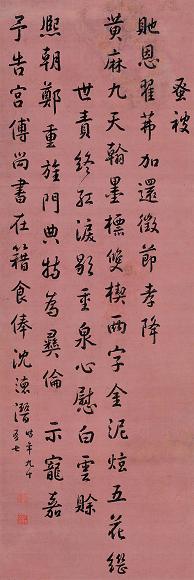 蚤被
貤恩翟茀加還徵節孝降
黃麻九天翰墨標雙楔兩字金泥炫五花繼
世責終紅淚影重泉心慰白雲賒
熙朝鄭重旌門典特為彝倫示寵嘉
予告宮傅尚書在籍食俸沈德潛時年九十有七